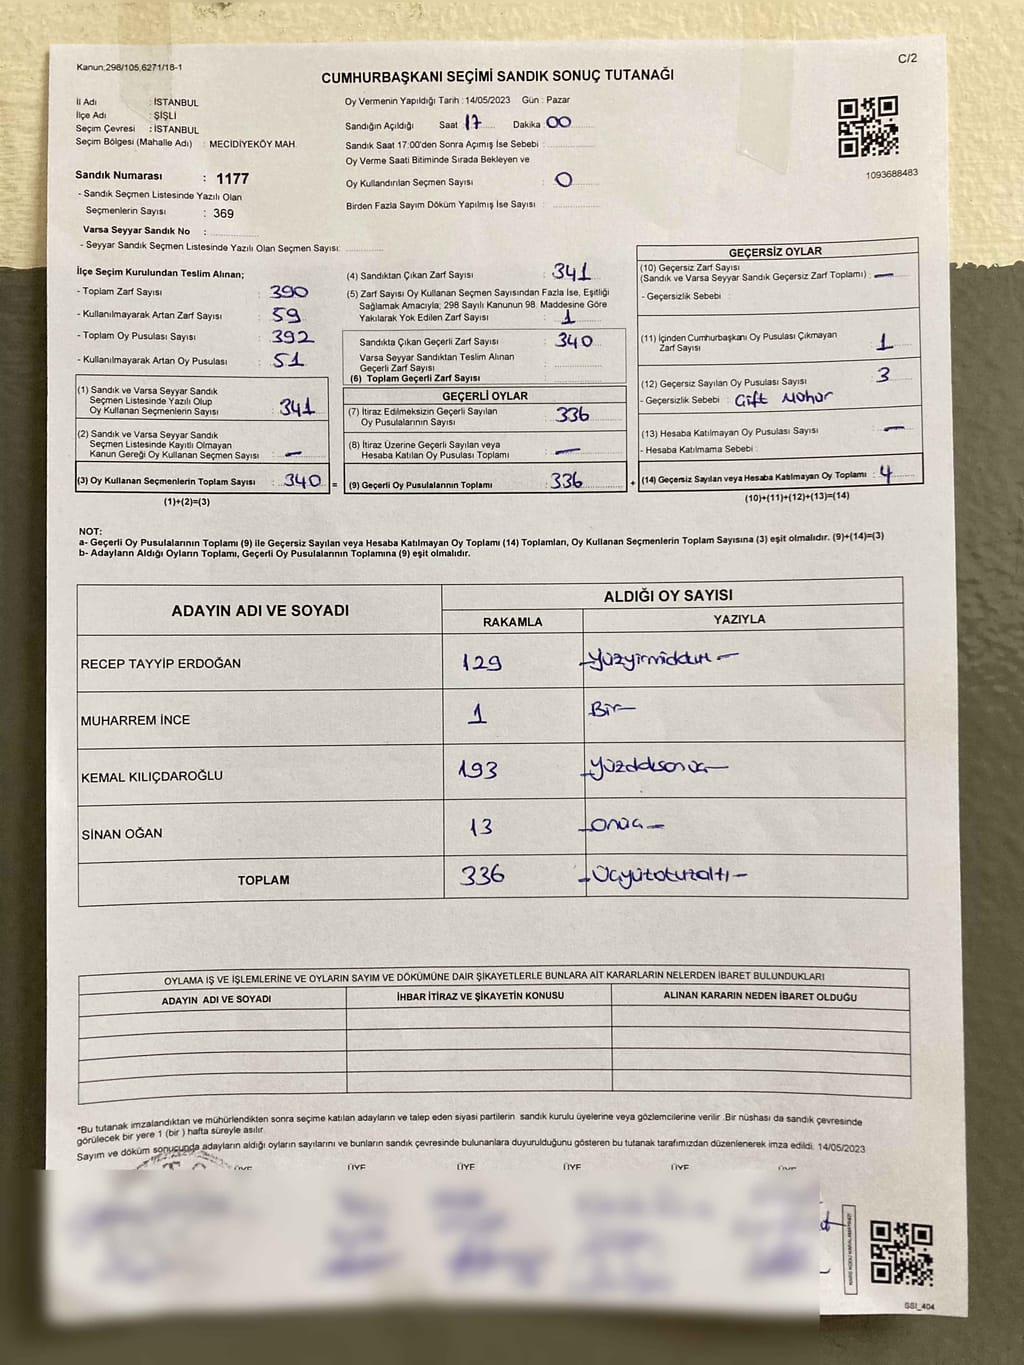 Kanun,298/105,6271/18-1
C/2
CUMHURBAŞKANI SEÇİMİ SANDIK SONUÇ TUTANAĞI
İl Adı : İSTANBUL
İlçe Adı : ŞİŞLİ
Seçim Çevresi : İSTANBUL
Seçim Bölgesi (Mahalle Adı) : MECİDİYEKÖY MAH.
Oy Vermenin Yapıldığı Tarih : 14/05/2023 Gün : Pazar
Sandığın Açıldığı Saat 17 Dakika 00
Sandık Saat 17:00'den Sonra Açımış İse Sebebi :
Oy Verme Saati Bitiminde Sırada Bekleyen ve
Oy Kullandırılan Seçmen Sayısı : 0
Birden Fazla Sayım Döküm Yapılmış İse Sayısı :
1093688483
Sandık Numarası : 1177
- Sandık Seçmen Listesinde Yazılı Olan
Seçmenlerin Sayısı : 369
Varsa Seyyar Sandık No :
- Seyyar Sandık Seçmen Listesinde Yazılı Olan Seçmen Sayısı:
İlçe Seçim Kurulundan Teslim Alınan;
- Toplam Zarf Sayısı : 390
- Kullanılmayarak Artan Zarf Sayısı : 59
- Toplam Oy Pusulası Sayısı : 392
- Kullanılmayarak Artan Oy Pusulası : 51
(1) Sandık ve Varsa Seyyar Sandık
Seçmen Listesinde Yazılı Olup
Oy Kullanan Seçmenlerin Sayısı : 341
(2) Sandık ve Varsa Seyyar Sandık
Seçmen Listesinde Kayıtlı Olmayan
Kanun Gereği Oy Kullanan Seçmen Sayısı : —
(3) Oy Kullanan Seçmenlerin Toplam Sayısı : 340
(1)+(2)=(3)
(4) Sandıktan Çıkan Zarf Sayısı : 341
(5) Zarf Sayısı Oy Kullanan Seçmen Sayısından Fazla İse, Eşitliği
Sağlamak Amacıyla; 298 Sayılı Kanunun 98. Maddesine Göre
Yakılarak Yok Edilen Zarf Sayısı : 1
Sandıkta Çıkan Geçerli Zarf Sayısı : 340
Varsa Seyyar Sandıktan Teslim Alınan
Geçerli Zarf Sayısı :
(6) Toplam Geçerli Zarf Sayısı :
GEÇERLİ OYLAR
(7) İtiraz Edilmeksizin Geçerli Sayılan
Oy Pusulalarının Sayısı : 336
(8) İtiraz Üzerine Geçerli Sayılan veya
Hesaba Katılan Oy Pusulası Toplamı : —
= (9) Geçerli Oy Pusulalarının Toplamı : 336
GEÇERSİZ OYLAR
(10) Geçersiz Zarf Sayısı
(Sandık ve Varsa Seyyar Sandık Geçersiz Zarf Toplamı) : —
- Geçersizlik Sebebi :
(11) İçinden Cumhurbaşkanı Oy Pusulası Çıkmayan
Zarf Sayısı : 1
(12) Geçersiz Sayılan Oy Pusulası Sayısı : 3
- Geçersizlik Sebebi : Çift Mühür
(13) Hesaba Katılmayan Oy Pusulası Sayısı : —
- Hesaba Katılmama Sebebi :
+ (14) Geçersiz Sayılan veya Hesaba Katılmayan Oy Toplamı : 4
(10)+(11)+(12)+(13)=(14)
NOT:
a- Geçerli Oy Pusulalarının Toplamı (9) ile Geçersiz Sayılan veya Hesaba Katılmayan Oy Toplamı (14) Toplamları, Oy Kullanan Seçmenlerin Toplam Sayısına (3) eşit olmalıdır. (9)+(14)=(3)
b- Adayların Aldığı Oyların Toplamı, Geçerli Oy Pusulalarının Toplamına (9) eşit olmalıdır.
ADAYIN ADI VE SOYADI ALDIĞI OY SAYISI
RAKAMLA YAZIYLA
RECEP TAYYİP ERDOĞAN 129
MUHARREM İNCE 1 Bir
KEMAL KILIÇDAROĞLU 193
SİNAN OĞAN 13 onüç
TOPLAM 336 Üçyüzotuzaltı
OYLAMA İŞ VE İŞLEMLERİNE VE OYLARIN SAYIM VE DÖKÜMÜNE DAİR ŞİKAYETLERLE BUNLARA AİT KARARLARIN NELERDEN İBARET BULUNDUKLARI
ADAYIN ADI VE SOYADI İHBAR İTİRAZ VE ŞİKAYETİN KONUSU ALINAN KARARIN NEDEN İBARET OLDUĞU
*Bu tutanak imzalandıktan ve mühürlendikten sonra seçime katılan adayların ve talep eden siyasi partilerin sandık kurulu üyelerine veya gözlemcilerine verilir. Bir nüshası da sandık çevresinde
görülecek bir yere 1 (bir ) hafta süreyle asılır.
Sayım ve döküm sonucunda adayların aldığı oyların sayılarını ve bunların sandık çevresinde bulunanlara duyurulduğunu gösteren bu tutanak tarafımızdan düzenlenerek imza edildi. 14/05/2023
ÜYE ÜYE ÜYE ÜYE ÜYE ÜYE
SSI_404